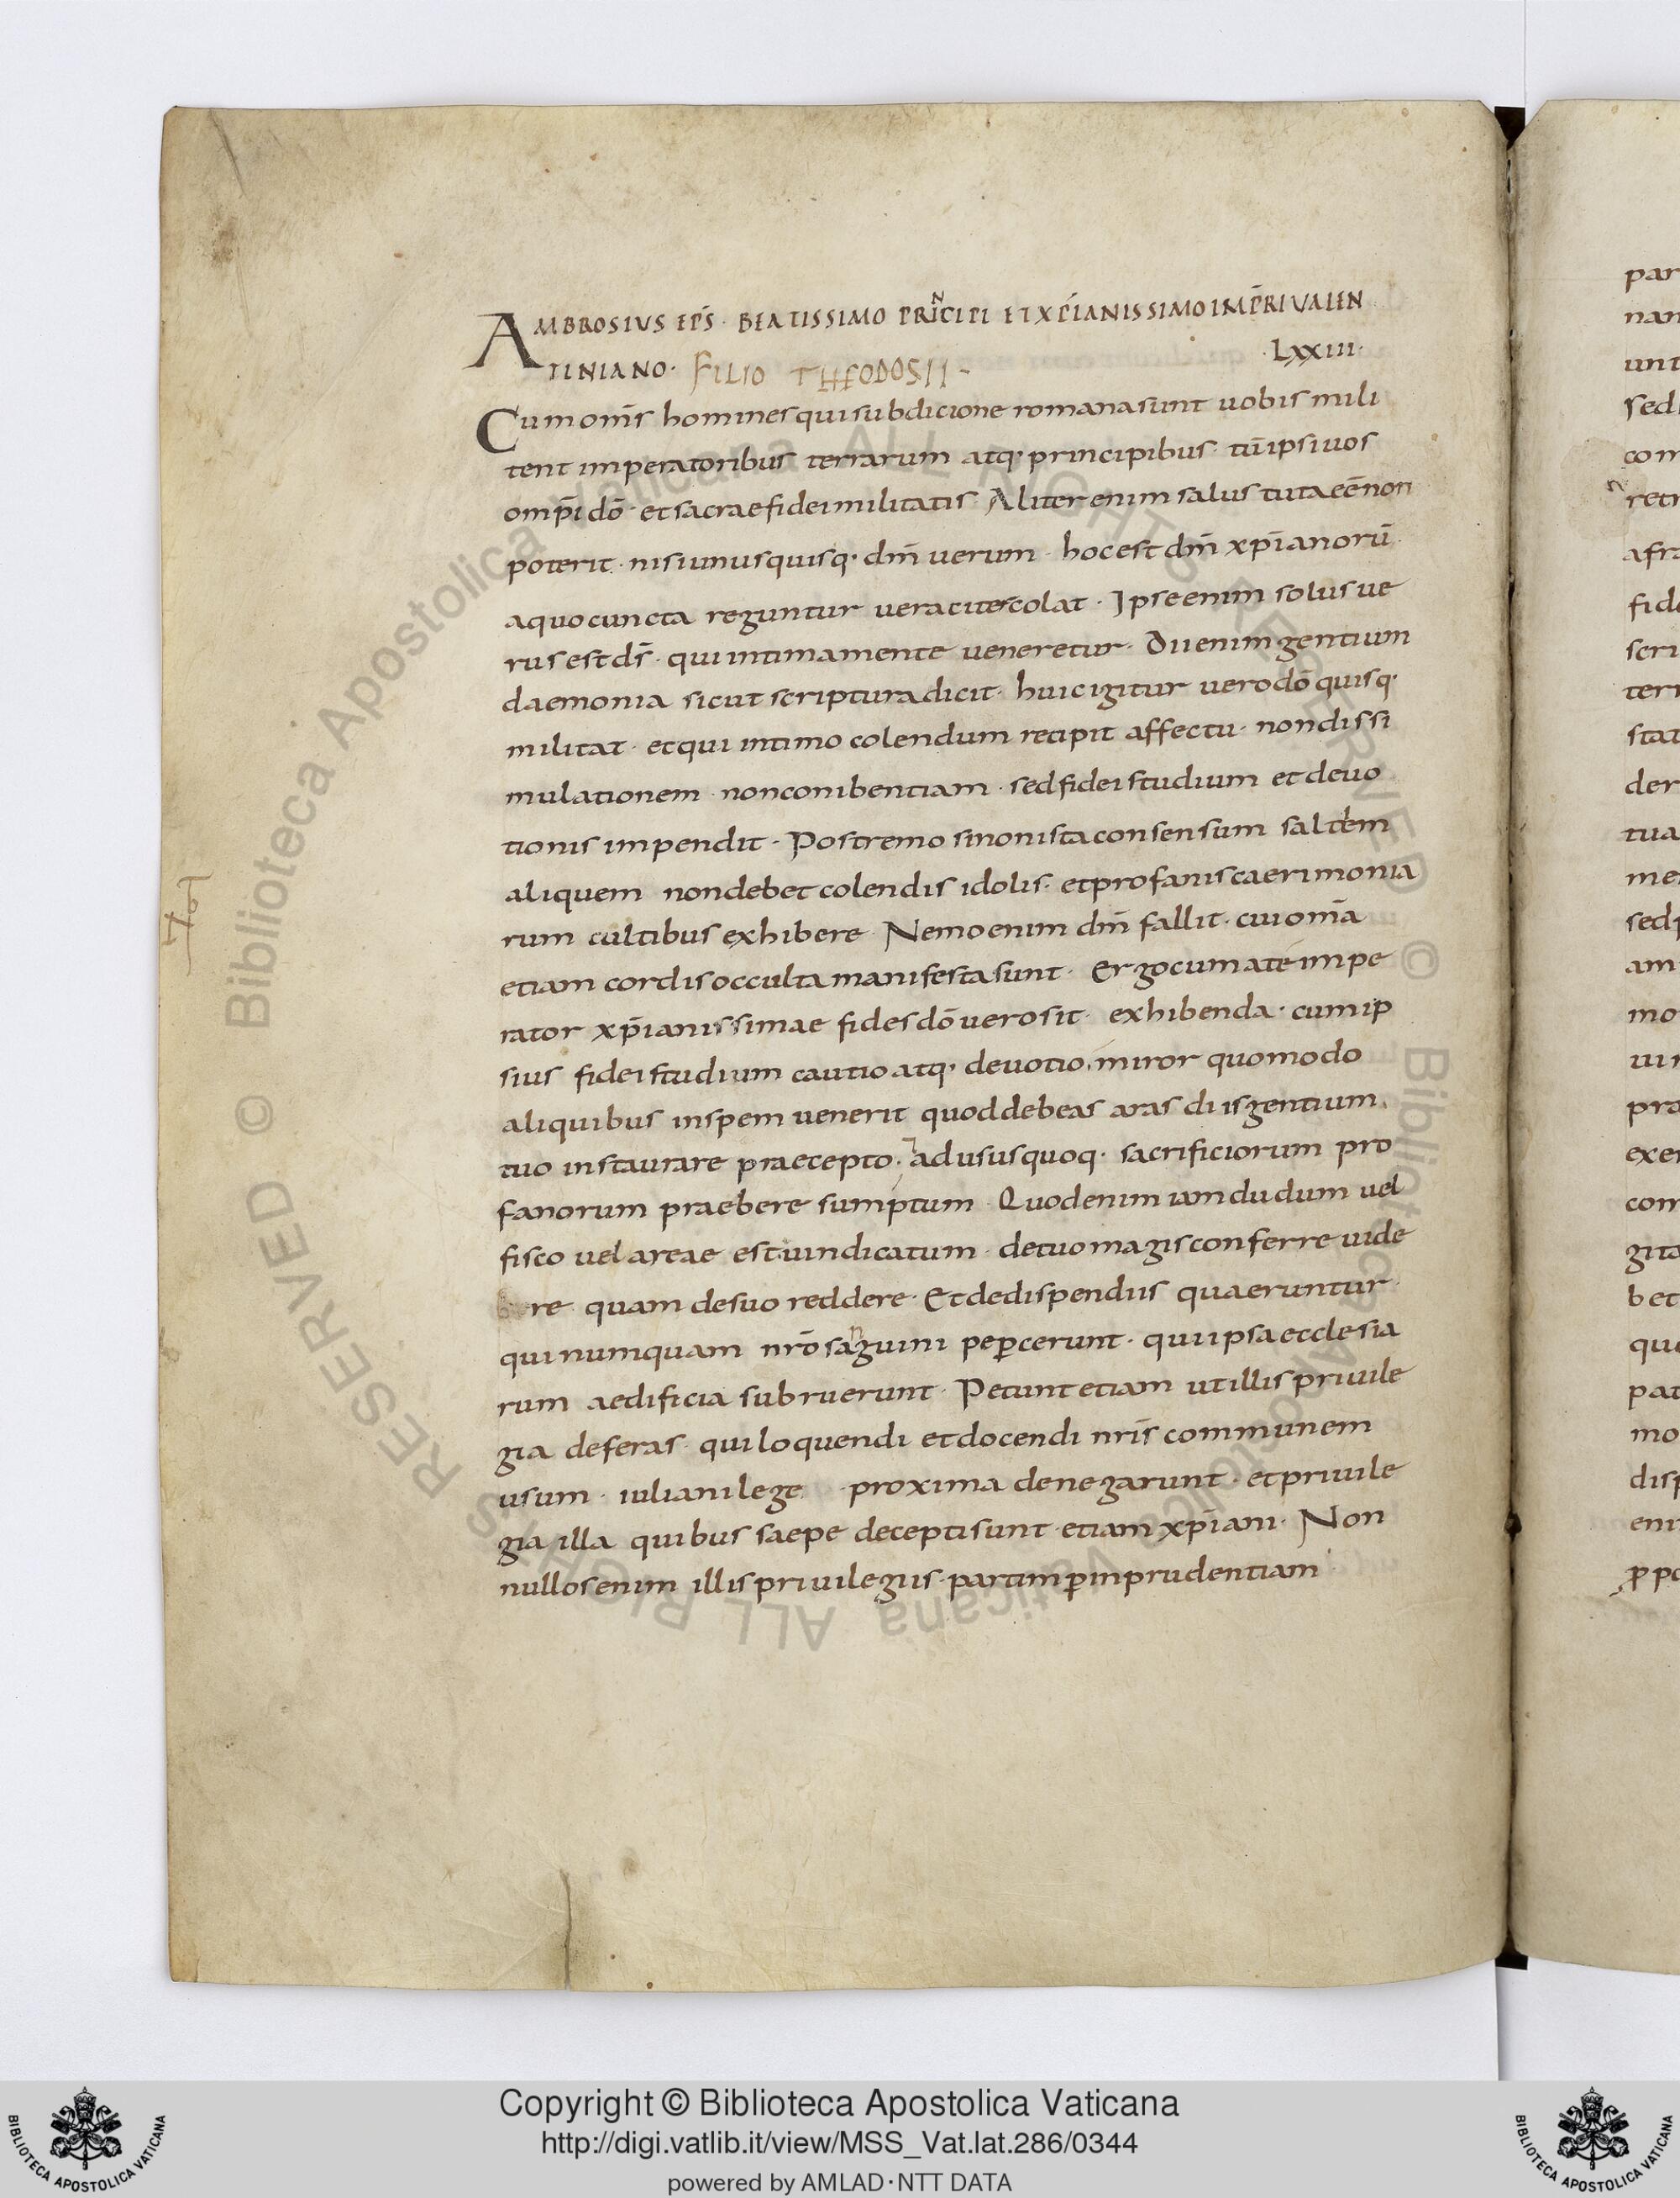 AMBROSIUS EP̄S · BEATISSIMO PRINCIPI ET XP̄IANISSIMO IMP̄RI VALEN
TINIANO · FILIO THEODOSII –
· LXXIII ·
Cum om̄s homines qui sub dicione romana sunt uobis mili
tent imperatoribus terrarum atq· principibus · tū ipsi uos
omp̄i dō · et sacrae fidei militatis · Aliter enim salus tuta eē non
poterit · nisi unusquisq· dm̄ uerum · hoc est dm̄ xp̄ianorū ·
a quo cuncta reguntur ueraciter colat · Ipse enim solus ue
rus est ds̄ · qui intima mente ueneretur · Dii enim gentium
daemonia sicut scriptura dicit · huic igitur uero dō quisq·
militat · et qui intimo colendum recipit affectu · non dissi
mulationem · non conibentiam · sed fidei studium et deuo
tionis impendit · Postremo si non ista consensum saltem
aliquem non debet colendis idolis · et profanis caerimonia
rum cultibus exhibere · Nemo enim dm̄ fallit · cui om̄a
etiam cordis occulta manifesta sunt · Ergo cum a te impe
rator xp̄ianissimae fides dō uero sit · exhibenda · cum ip
sius fidei studium cautio atq· deuotio, miror quomodo
aliquibus in spem uenerit quod debeas aras diis gentium
tuo instaurare praecepto · ad usus quoq· sacrificiorum pro
fanorum praebere sumptum · Quod enim iam dudum uel
fisco uel arcae est uindicatum · de tuo magis conferre uide
re quam de suo reddere · Et de dispendiis quaeruntur ·
qui numquam nr̄o sanguini pepercerunt · qui ipsa ecclesia
rum aedificia subruerunt · Petunt etiam ut illis priuile
gia deferas · qui loquendi et docendi nr̄is communem
usum · iuliani lege · proxima denegarunt · et priuile
gia illa quibus saepe decepti sunt etiam xp̄iani · Non
nullos enim illis priuilegiis · partim p̱ inprudentiam
par
nan
unt
sed
com
retr
afra
fide
scri
terr
stat
der
tua
me
sed
am
mo
uin
pra
exer
com
gita
bet
que
pat
mo
disp
eni
© Biblioteca Apostolica Vaticana ALL RIGHTS RESERVED © Biblioteca Apostolica Vaticana ALL RIGHTS RESERVED
Copyright © Biblioteca Apostolica Vaticana
http://digi.vatlib.it/view/MSS_Vat.lat.286/0344
powered by AMLAD·NTT DATA
BIBLIOTECA APOSTOLICA VATICANA
BIBLIOTECA APOSTOLICA VATICANA